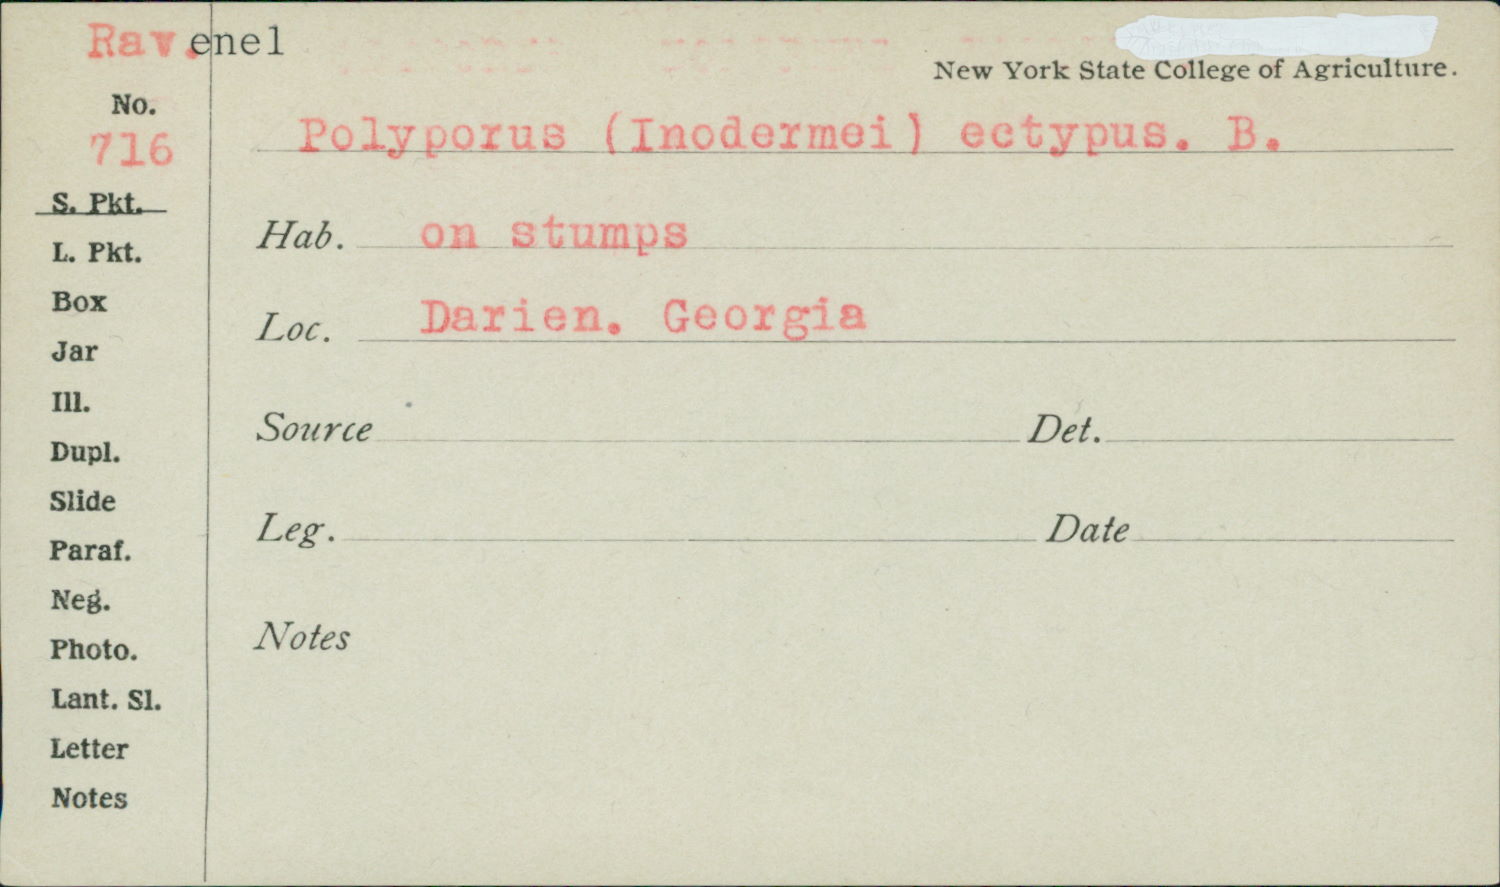 Rav.enel
New York State College of Agriculture.
No.
716
Polyporus (Inodermei) ectypus. B.
S. Pkt.
Hab. on stumps
L. Pkt.
Box
Loc. Darien. Georgia
Jar
Ill.
Source Det.
Dupl.
Slide
Leg. Date
Paraf.
Neg.
Notes
Photo.
Lant. Sl.
Letter
Notes